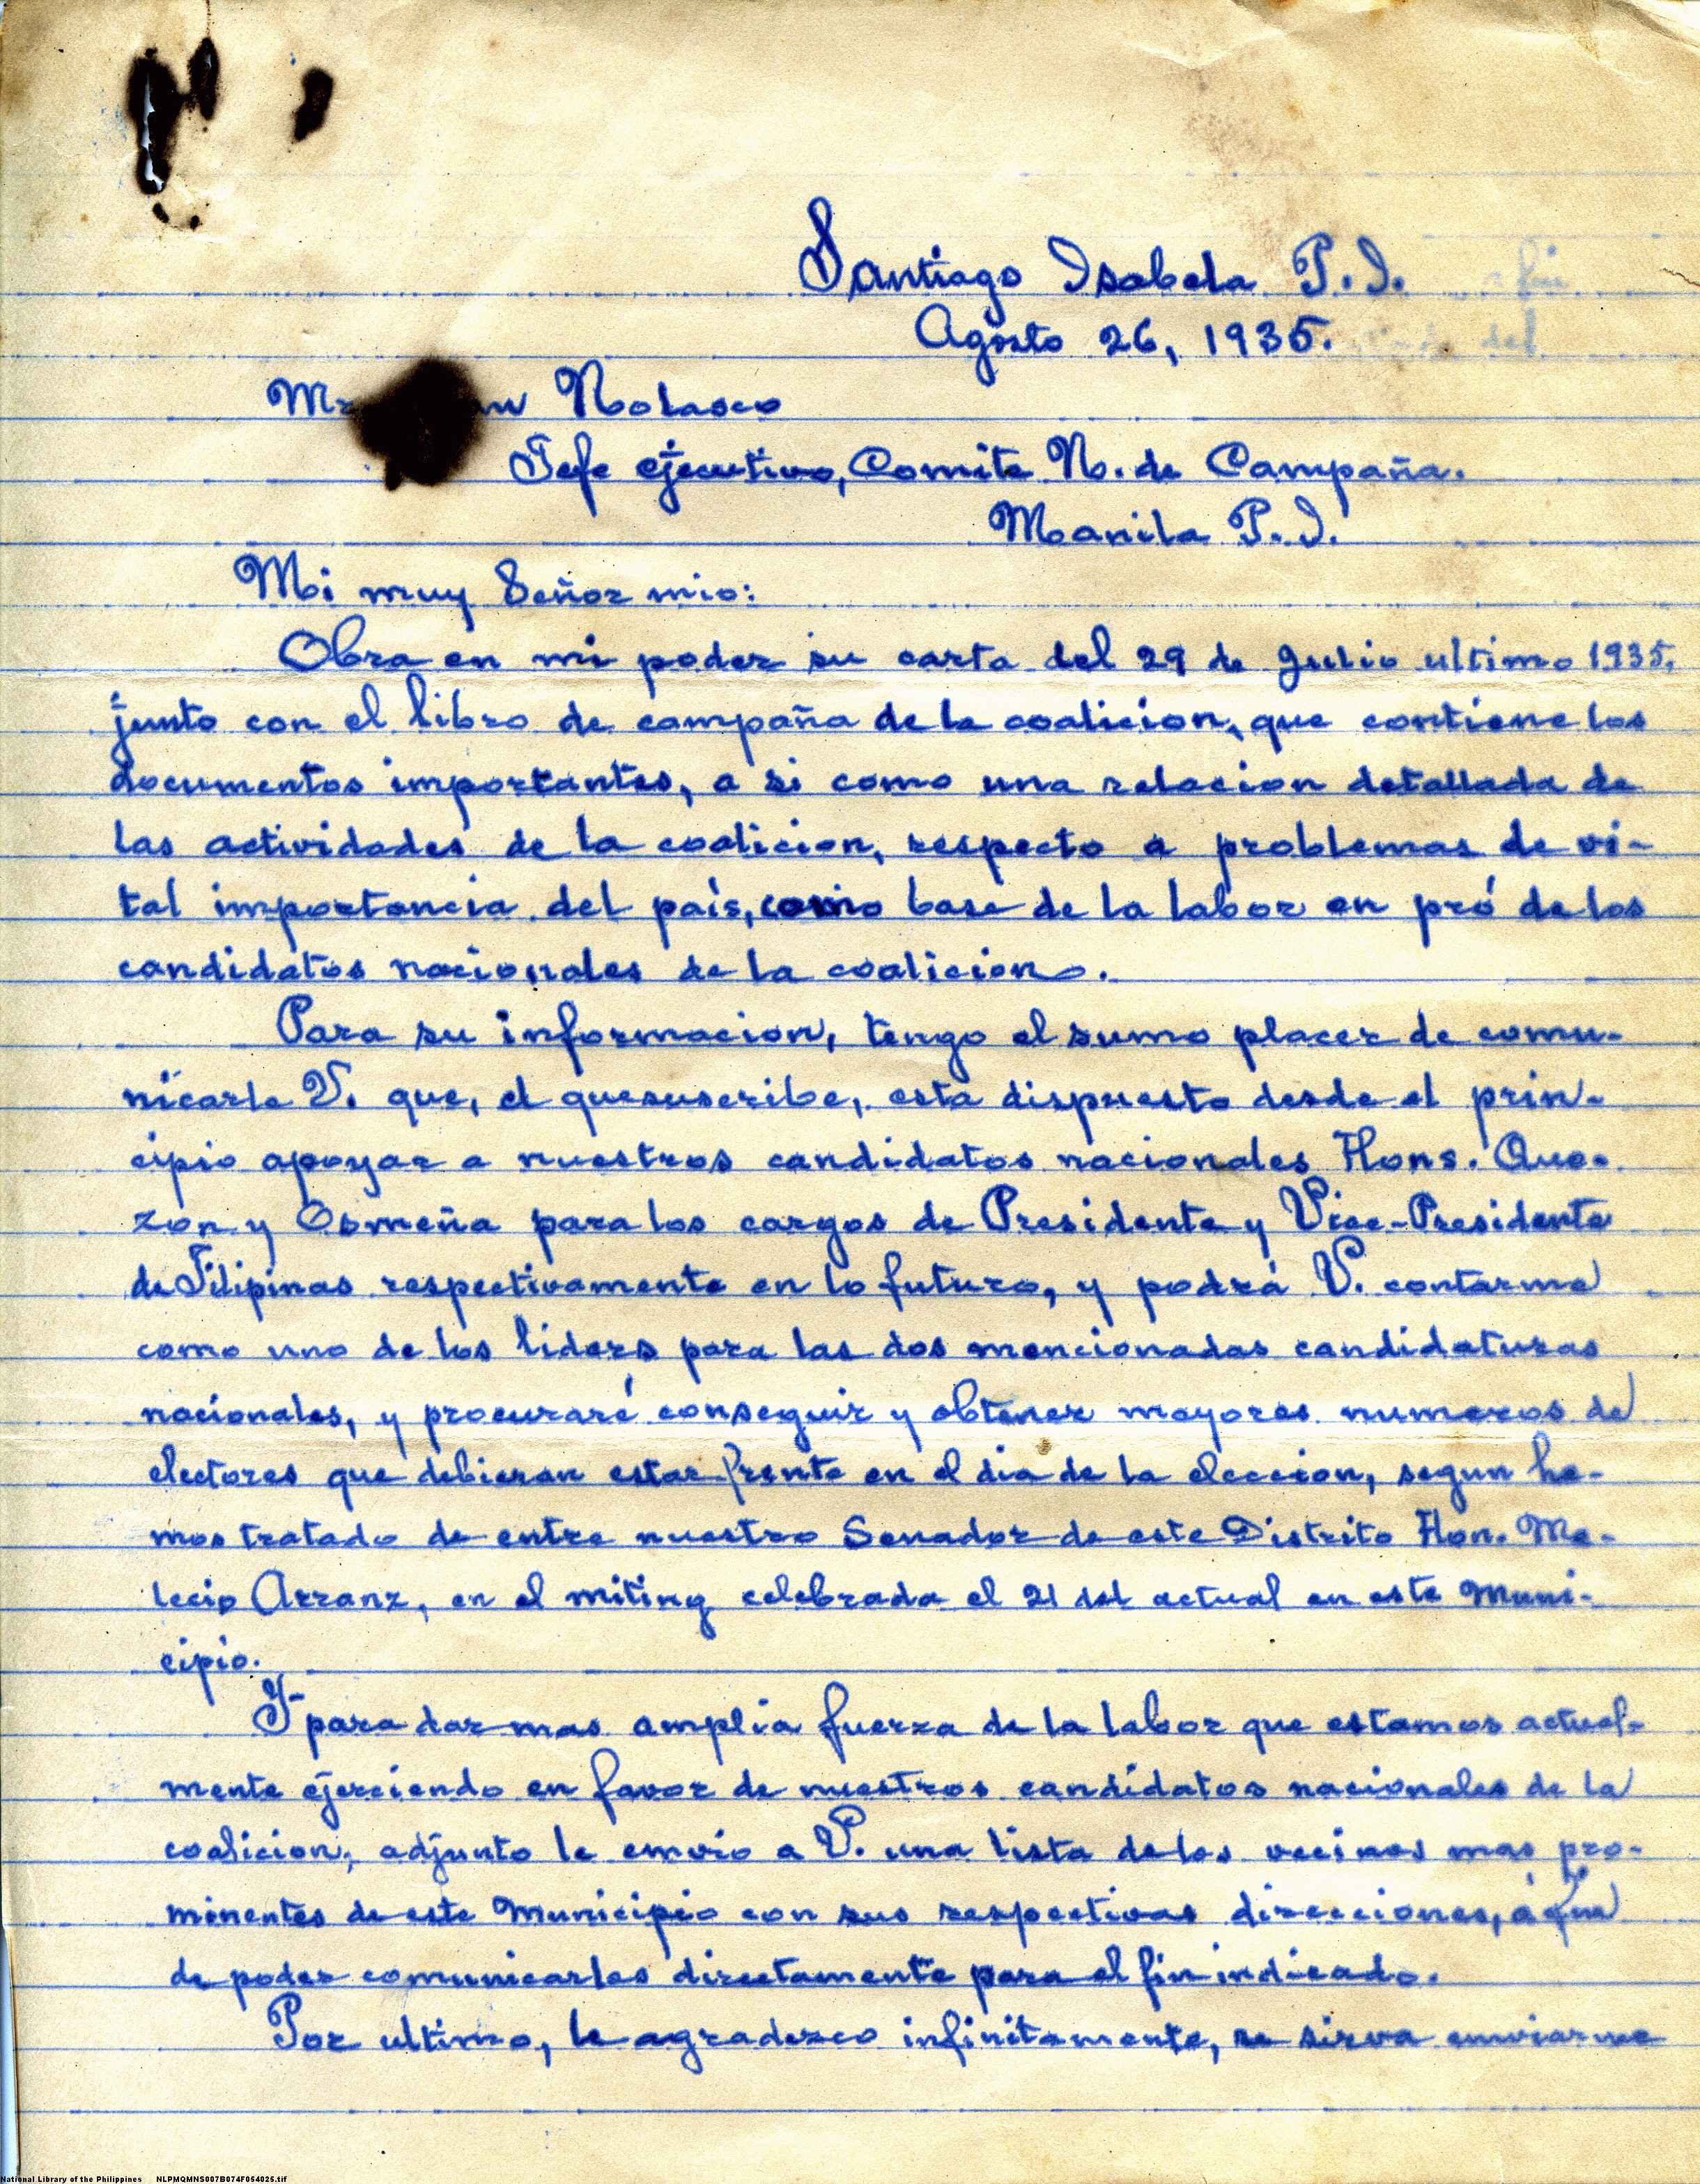 Santiago Isabela P. I.
Agosto 26, 1935.
Nolasco
Jefe ejecutivo, Comite N. de Campaña.
Manila P. I.
Mi muy Señor mio:
Obra en mi poder su carta del 29 de Julio ultimo 1935,
junto con el libro de campaña de la coalicion, que contiene los
documentos importantes, a si como una relacion detallada de
las actividades de la coalicion, respecto a problemas de vi-
tal importancia del país, como base de la labor en pró de los
candidatos nacionales de la coalicion.
Para su informacion, tengo el sumo placer de comu-
nicarle V. que, el que suscribe, esta dispuesto desde el prin-
cipio apoyar a nuestros candidatos nacionales Hons. Que-
zon y Osmeña para los cargos de Presidente y Vice-Presidente
de Filipinas respectivamente en lo futuro, y podrá V. contarme
como uno de los liders para las dos mencionadas candidaturas
nacionales, y procuraré conseguir y obtener mayores numeros de
electores que debieran estar frente en el dia de la eleccion, segun he-
mos tratado de entre nuestro Senador de este Distrito Hon. Me-
lecio Arranz, en el miting celebrada el 21 del actual en este Muni-
cipio.
Y para dar mas amplia fuerza de la labor que estamos actual-
mente ejerciendo en favor de nuestros candidatos nacionales de la
coalicion, adjunto le envio a V. una lista de los vecinos mas pro-
minentes de este Municipio con sus respectivas direcciones, á fin
de poder comunicarles directamente para el fin indicado.
Por ultimo, le agradezco infinitamente, se sirva enviarme
National Library of the Philippines NLPMQMNS007B074F054025.tif